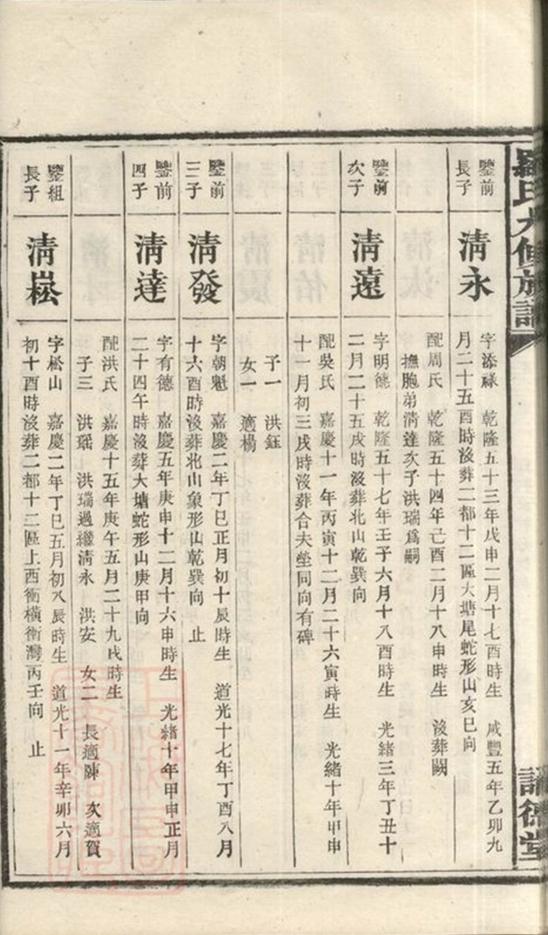 羅氏大修族譜
誦德堂
鑒前
長子
清永
字添祿 乾隆五十三年戊申二月十七酉時生 咸豐五年乙卯九
月二十五酉時沒葬二都十二區大塘尾蛇形山亥巳向
配周氏 乾隆五十四年己酉二月十八申時生 沒葬闕
撫胞弟清達次子洪瑞為嗣
鑒前
次子
清遠
字明能 乾隆五十七年壬子六月十八酉時生 光緒三年丁丑十
二月二十五戌時沒葬北山乾巽向
配吳氏 嘉慶十一年丙寅十二月二十六寅時生 光緒十年甲申
十一月初三戌時沒葬合夫塋同向有碑
子一 洪鈺
女一 適楊
鑒前
三子
清發
字朝魁 嘉慶二年丁巳正月初十辰時生 道光十七年丁酉八月
十六酉時沒葬北山象形山乾巽向 止
鑒前
四子
清達
字有德 嘉慶五年庚申十二月十六申時生 光緒十年甲申正月
二十四午時沒葬大塘蛇形山庚甲向
配洪氏 嘉慶十五年庚午五月二十九戌時生
子三 洪瑶 洪瑞過繼清永 洪安 女二 長適陳 次適賀
鑒組
長子
清崧
字松山 嘉慶二年丁巳五月初八辰時生 道光十一年辛卯六月
初十酉時沒葬二都十二區上西衝橫衝灣丙壬向 止